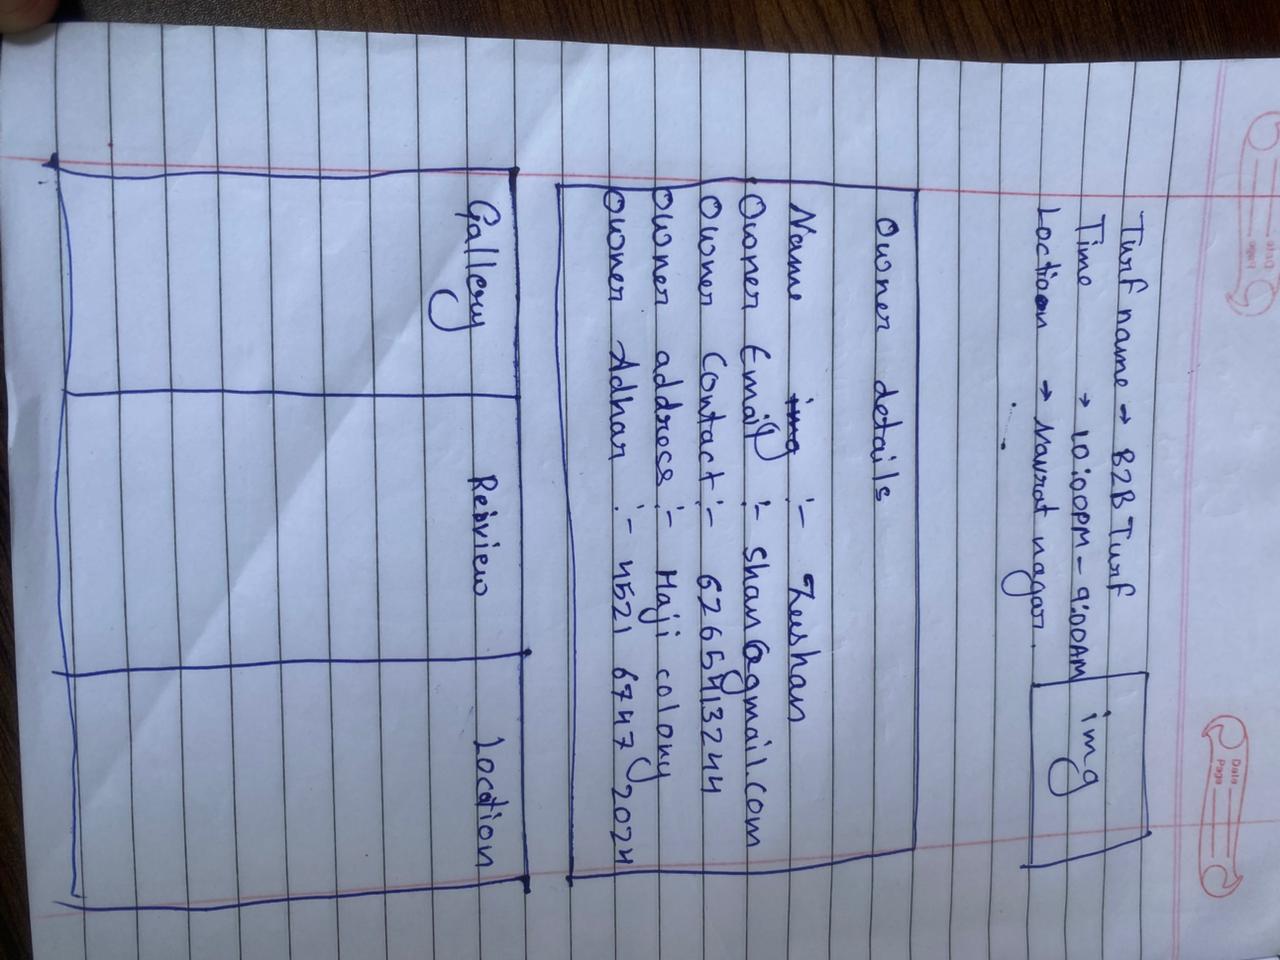 Date
Page
Turf name → B2B Turf
Time → 10:00PM - 9:00AM
img
Loction → Navrat nagar.
Owner details
Name :- Zeeshan
Owner Email :- shan@gmail.com
Owner Contact :- 6265413244
Owner address :- Haji colony
Owner Adhar :- 4521 6747 2024
Gallery
Reivview
Location